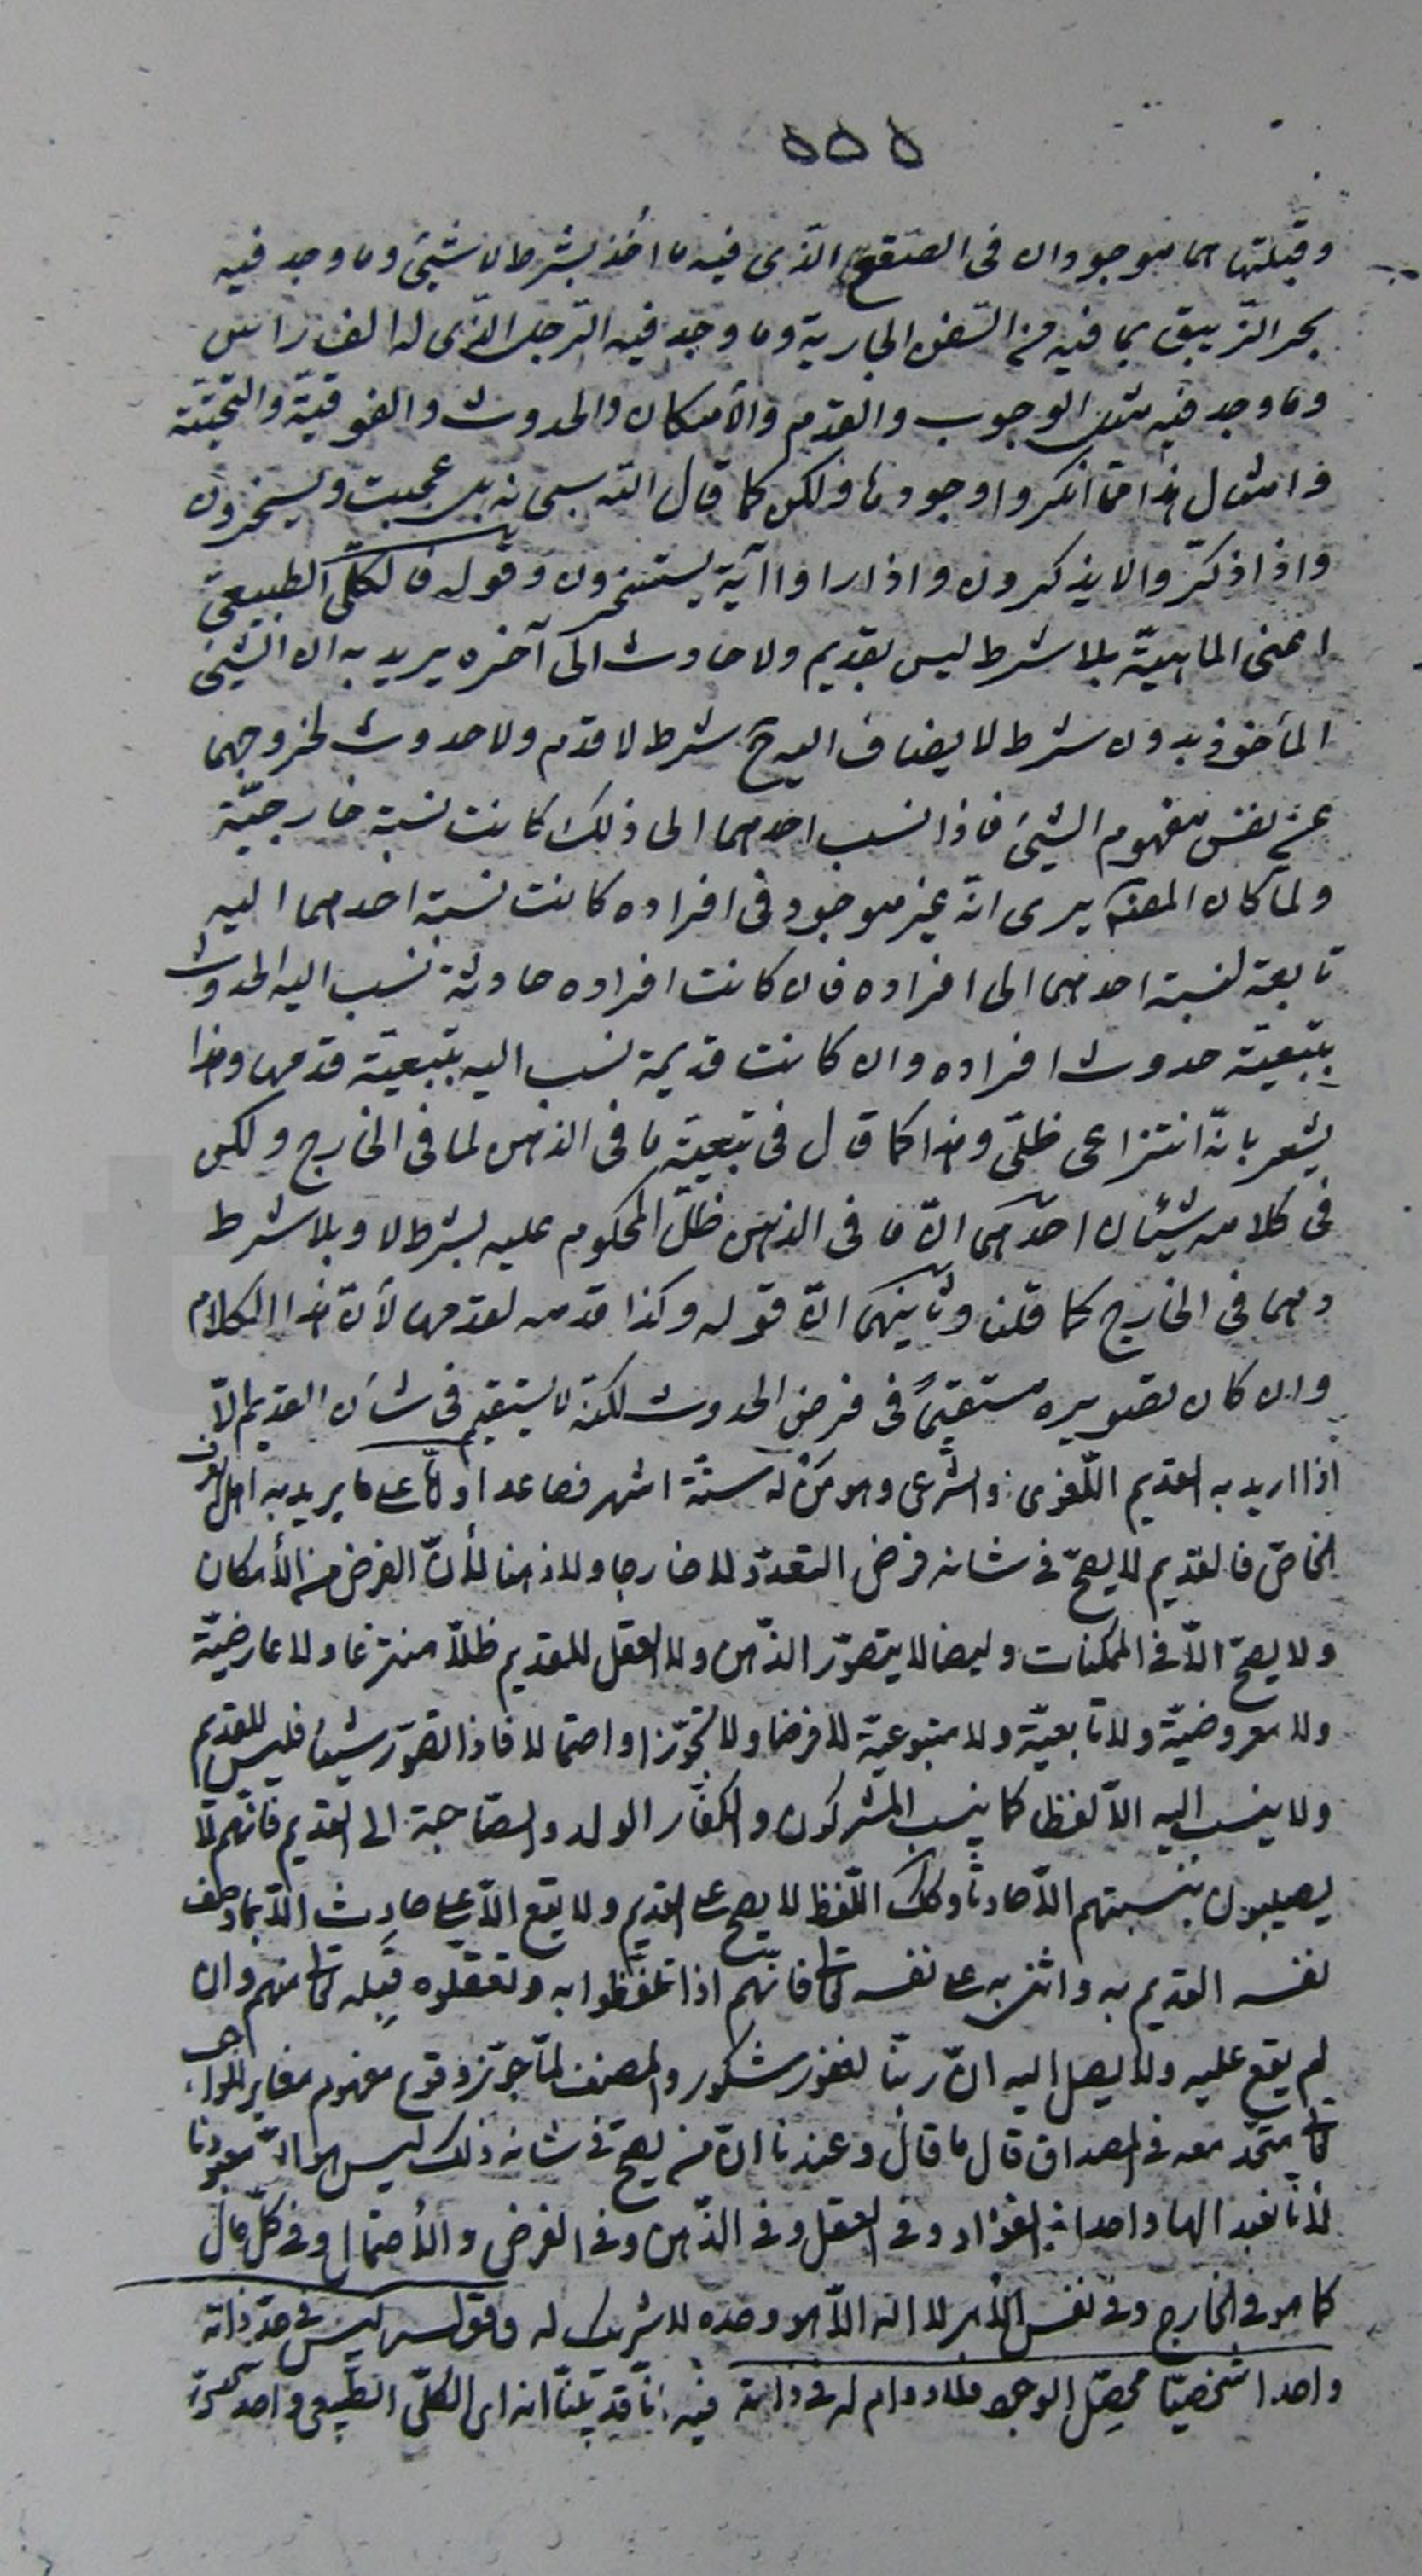 ۵۵۵
وقبلتها هما موجودان فى الصقع الّذى فيه ما اُخذ بشرط لا شيئ وما وجد فيه
بحر الزّيبق بما فيه من السّفن الجارية وما وجد فيه الرّجل الّذى له الف راس
وما وجد فيه مثل الوجوب والقدم والأمكان والحدوث والفوقيّة والتّحتيّة
وامثال هذا ممّا انكروا وجودها ولكن كما قال اللّه سبحانه بل عجبت ويسخرون
واذا ذكّروا لا يذكرون واذا راوا آية يستسخرون وقوله فالكلّى الطبيعىّ
اعنى الماهيّة بلا شرط ليس بقديم ولا حادث الى آخره يريد به انّ الشيئ
المأخوذ بدون شرط لا يضاف اليه ح شرط لا قدم ولا حدوث لخروجهما
عن نفس مفهوم الشيئ فاذا نسب احدهما الى ذلك كانت نسبة خارجيّة
ولمّا كان المصنّف يرى انّه غير موجود فى افراده كانت نسبة احدهما اليه
تابعة لنسبة احدهما الى افراده فان كانت افراده حادثة نسب اليه الحدوث
بتبعيّة حدوث افراده وان كانت قديمة نسب اليه بتبعيّة قدمها وهذا
يشعر بانّه انتزاعى ظلّى وهذا كما قال فى تبعيّة ما فى الذهن لما فى الخارج ولكن
فى كلامه شيئان احدهما انّ ما فى الذهن ظلّ المحكوم عليه بشرط لا وبلا شرط
وهما فى الخارج كما قلنا وثانيهما انّ قوله وكذا قدمه لقدمها لأنّ هذا الكلام
وان كان تصويره مستقيمًا فى فرض الحدوث لكنّه لا يستقيم فى شأن القديم الّا
اذا اريد به القديم اللّغوى والشّرعى وهو من له ستّة اشهر فصاعدا وامّا على ما يريد به اهل العرف
الخاصّ فالقديم لا يصحّ فى شانه فرض التعدّد لا خارجا ولا ذهنا لأنّ الفرض من الأمكان
ولا يصحّ الّا فى الممكنات وايضا لا يتصوّر الذّهن ولا العقل للقديم ظلّا منتزعا ولا عارضيّة
ولا معروضيّة ولا تابعيّة ولا متبوعيّة لا فرضا ولا تجوّزا واحتمالا فاذا تصوّر شيئا فليس للقديم
ولا ينسب اليه الّا لفظا كما ينسب المشركون والكفّار الولد والصّاحبة الى القديم فانّهم لا
يصيبون بنسبتهم الّا حادثا وكلّ اللّفظ لا يصحّ على القديم ولا يقع الّا على حادث الّا بما وصف
نفسه القديم به واثنى به على نفسه تعالى فانّهم اذا تلفّظوا به وتعقّلوه قبله تعالى منهم وان
لم يقع عليه ولا يصل اليه انّ ربّنا لغفور شكور والمصنف لمّا جوّز وقوع مفهوم مغاير للواجب
تعالى متّحد معه فى المصداق قال ما قال وعندنا انّ من يصحّ فى شانه ذلك ليس هو معبودنا
لأنّا نعبد الها واحدا فى الفؤاد وفى العقل وفى الذّهن وفى الفرض والأحتمال وفى كلّ حال
كما هو فى الخارج وفى نفس الأمر لا اله الّا هو وحده لا شريك له وقوله ليس فى حدّ ذاته
واحدا شخصيّا محصّل الوجود فلا دوام له فى ذاته فيه انّا قد بيّنّا انه اى الكلّى الطّبيعى واحد